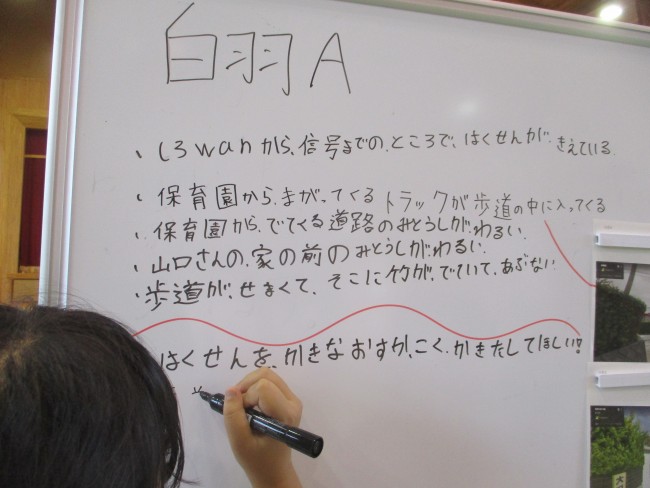 白羽 A
、しろwanから、信号までの、ところで、はくせんが、きえている
、保育園から、まがってくるトラックが歩道の中に入ってくる
、保育園から、でてくる道路のみとうしが、わるい
、山口さんの、家の前のみとうしが、わるい
、歩道が、せまくて、そこに竹が、でていて、あぶない
はくせんを、かきなおすか、こく、かきたしてほしい!